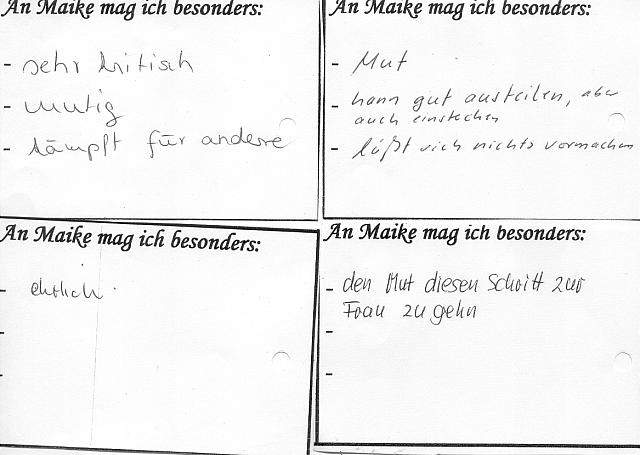 An Maike mag ich besonders:
- sehr kritisch
- mutig
- kämpft für andere
An Maike mag ich besonders:
- Mut
- kann gut austeilen, aber
auch einstecken
- läßt sich nichts vormachen
An Maike mag ich besonders:
- ehrlich
-
-
An Maike mag ich besonders:
- den Mut diesen Schritt zur
Frau zu gehn
-
-